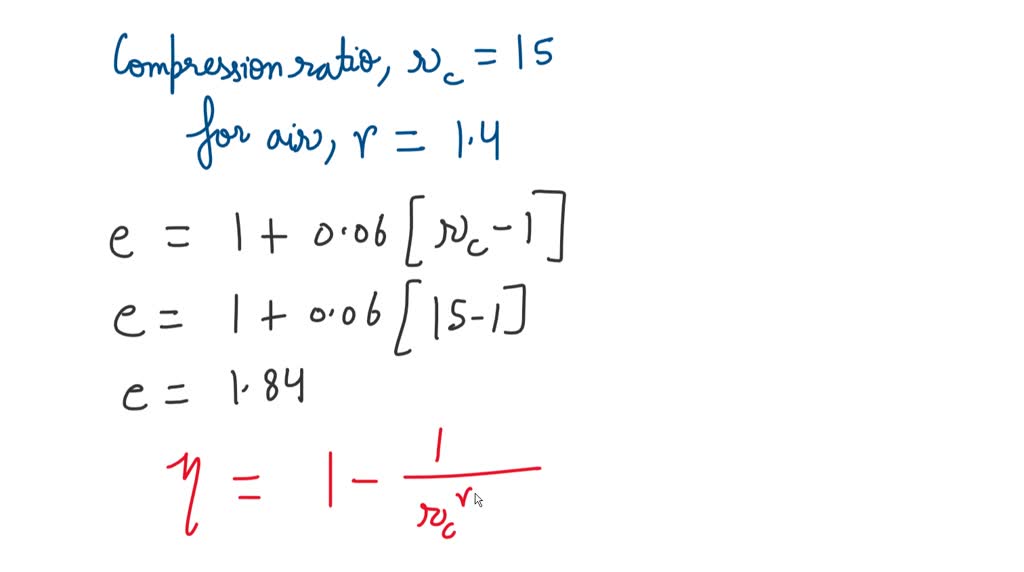 Compression ratio, r_c = 15
for air, r = 1.4
e = 1 + 0.06 [r_c - 1]
e = 1 + 0.06 [15-1]
e = 1.84
η = 1 - 1/r_c^r